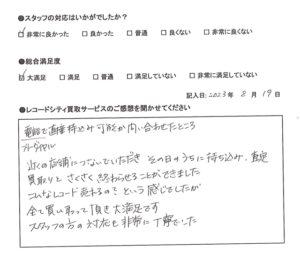 ●スタッフの対応はいかがでしたか?
☑非常に良かった □良かった □普通 □良くない □非常に良くない
●総合満足度
☑大満足 □満足 □普通 □満足していない □非常に満足していない
記入日:2023年 8月 19日
●レコードシティ買取サービスのご感想を聞かせてください
電話で直接持込み可能か問い合わせたところ
フリーダイヤル
近くの店舗につないでいただき その日のうちに持ち込み、査定
買取りと さくさく終わらせることができました
こんなレコード売れるの? という感じでしたが
全て買い取って頂き大満足です
スタッフの方の対応も非常に丁寧でした